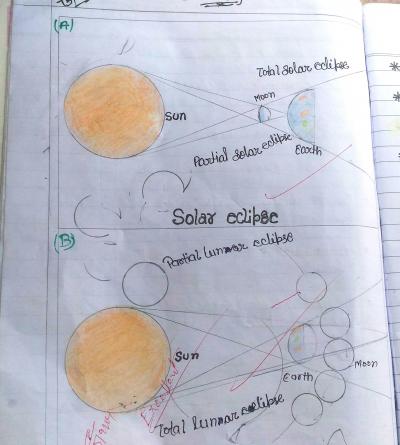 (A)
Total solar eclipse
Moon
Sun
Partial solar eclipse
Earth
Solar eclipse
(B)
Partial lunnar eclipse
Sun
Moon
Earth
Total lunnar eclipse